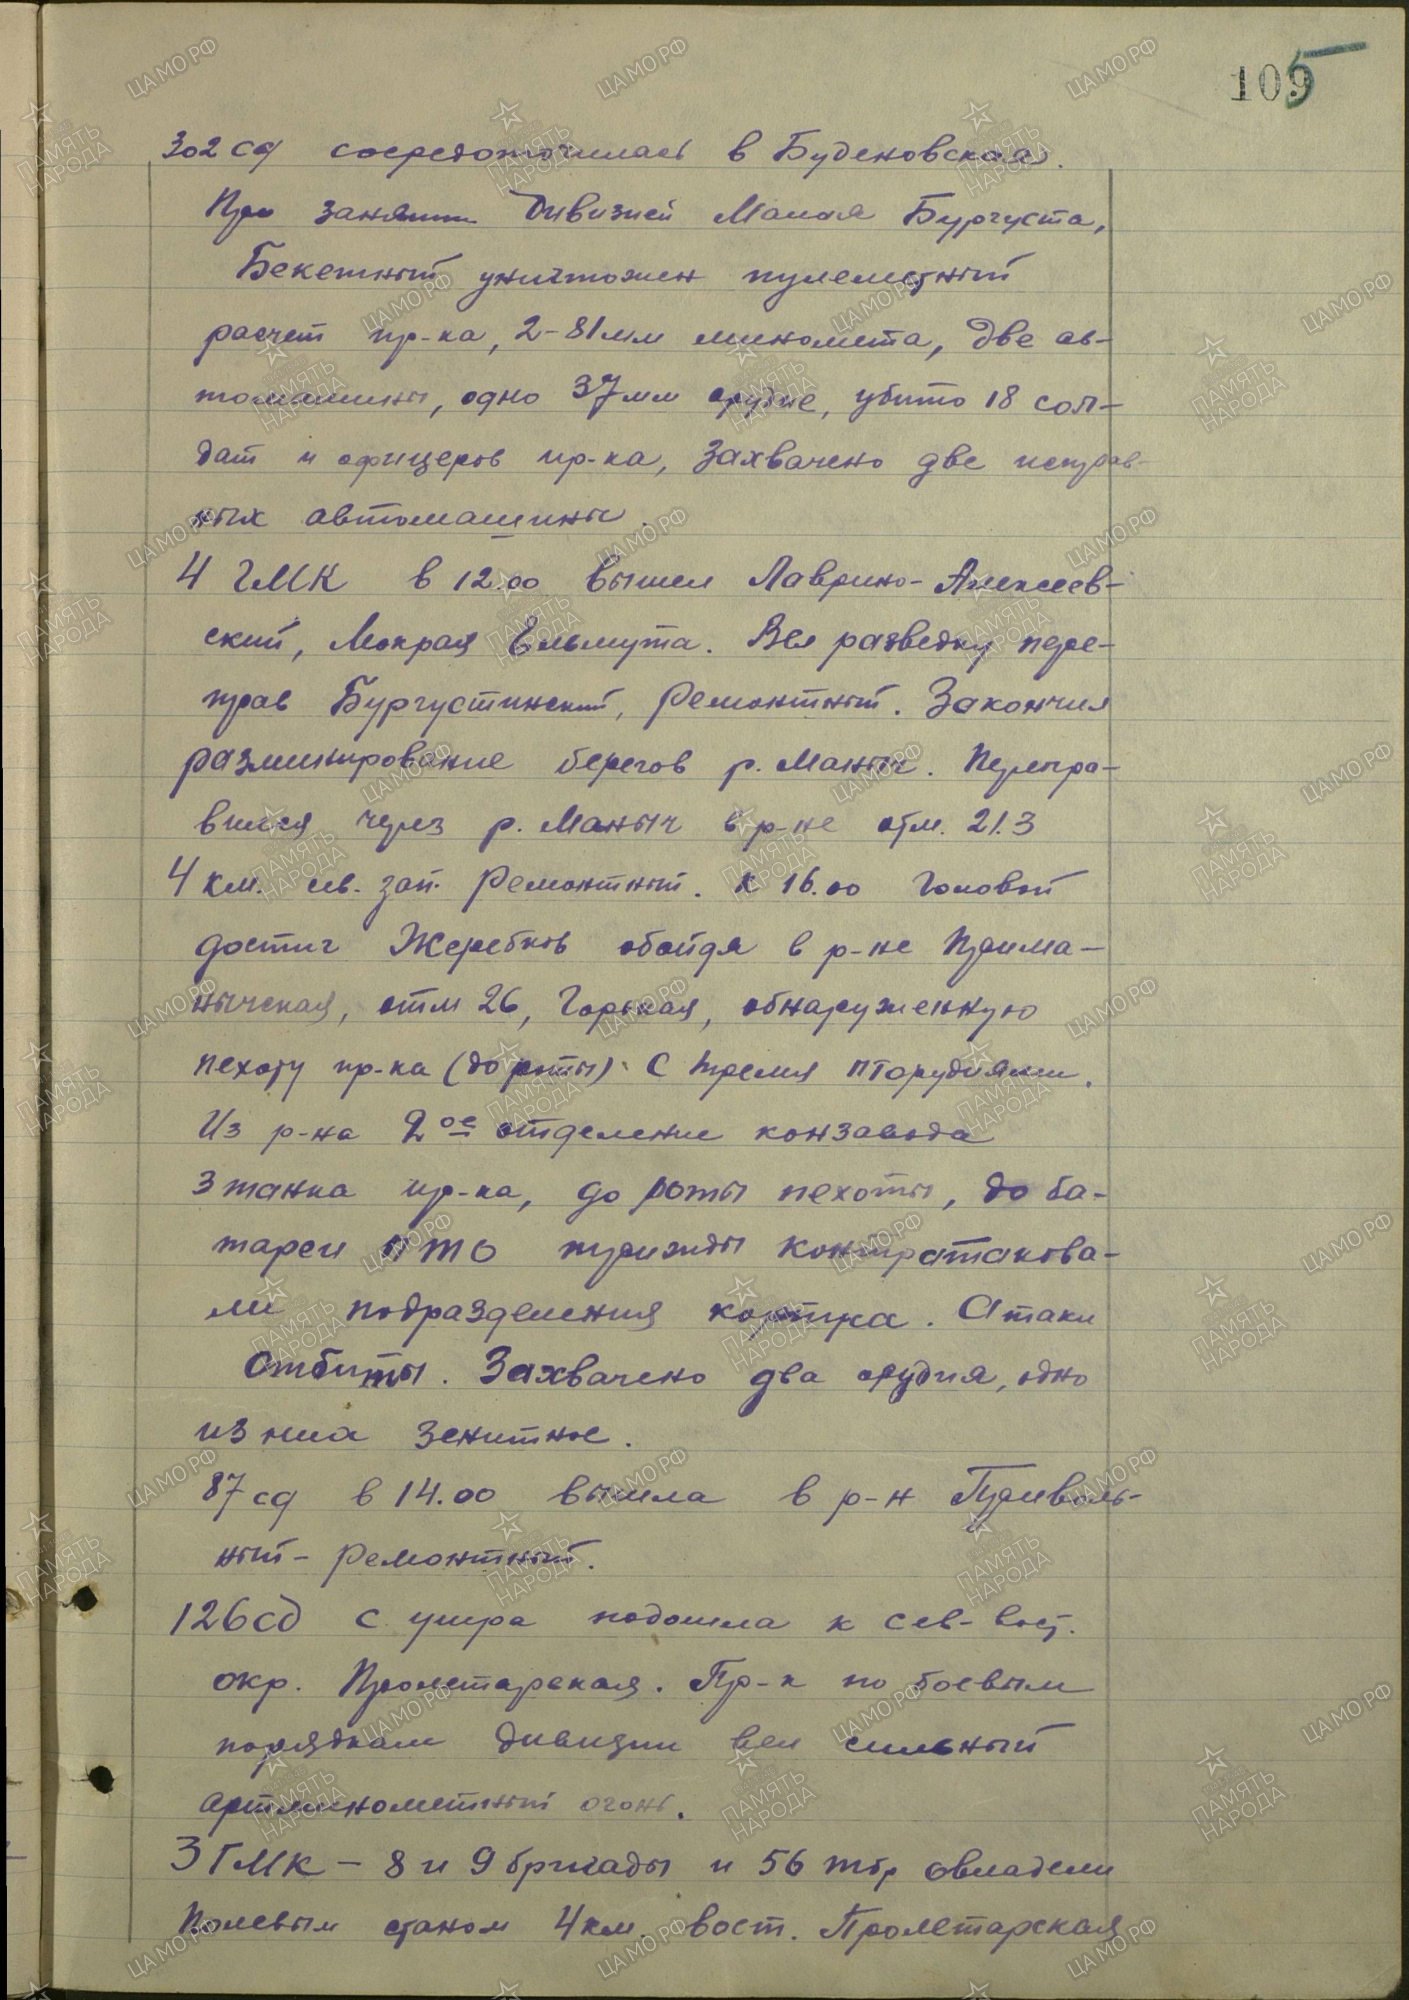 105
302 сд сосредоточилась в Буденовская.
При занятии дивизией Малая Бургуста,
Бекетный уничтожен пулеметный
расчет пр-ка, 2-81мм миномета, две ав-
томашины, одно 37мм орудие, убито 18 сол-
дат и офицеров пр-ка, захвачено две исправ-
ных автомашины.
4 ГМК в 12.00 вышел Лаврино-Алексеев-
ский, Мокрая Ельмута. Вел разведку пере-
прав Бургустинский, Ремонтный. Закончил
разминирование берегов р. Маныч. Перепра-
вился через р. Маныч в р-не отм. 21.3
4 км. сев. зап. Ремонтный. К 16.00 головой
достиг Жеребков обойдя в р-не Прима-
нычская, отм 26, Горькая, обнаруженную
пехоту пр-ка (до роты) с тремя пторудиями.
Из р-на 2ое отделение конзавода
3 танка пр-ка, до роты пехоты, до ба-
тареи ПТО трижды контратакова-
ли подразделения корпуса. Атаки
отбиты. Захвачено два орудия, одно
из них зенитное.
87 сд в 14.00 вышла в р-н Приволь-
ный-Ремонтный.
126 сд с утра подошла к сев-вост.
окр. Пролетарская. Пр-к по боевым
порядкам дивизии вел сильный
артминометный огонь.
3 ГМК - 8 и 9 бригады и 56 тбр овладели
Полевым станом 4 км. вост. Пролетарская
ЦАМО РФ
ПАМЯТЬ НАРОДА